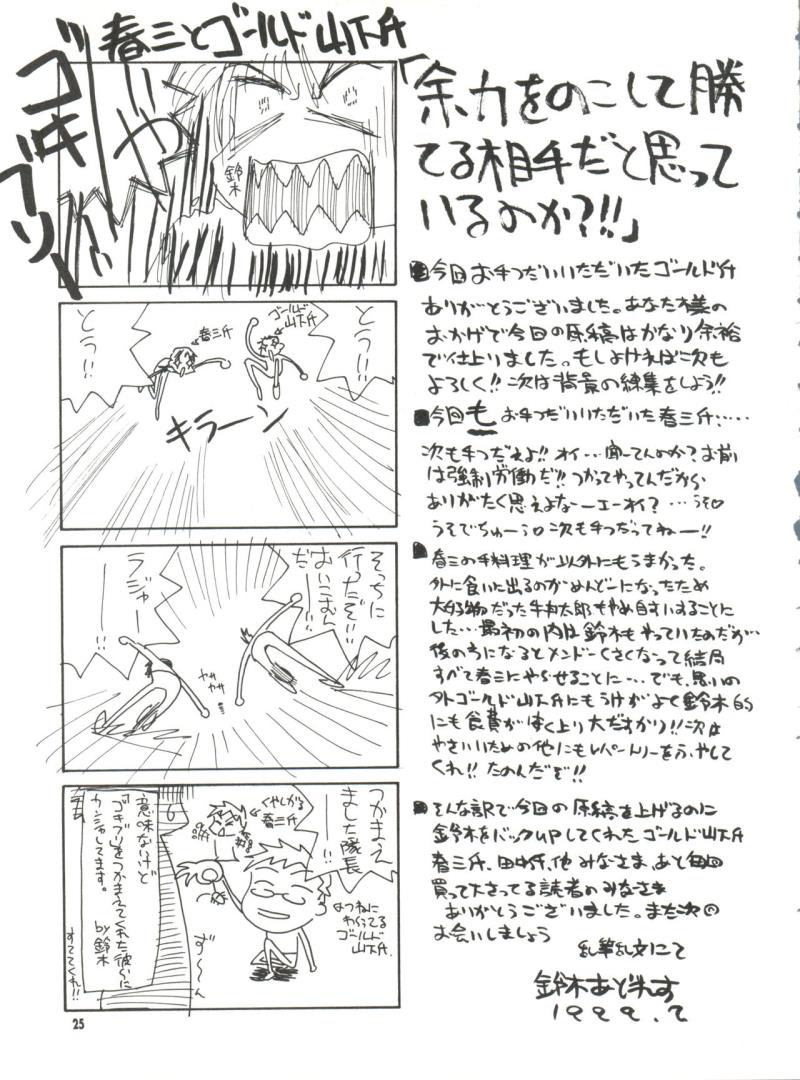 春三とゴールド山下氏
ゴキブリー
いや
鈴木
とうー!!
春三氏
ゴールド
山下氏
とうー!!
キラーン
そっちに
行ったぞ!!
おいこむん
だ――!!
ラジャー
――!!
ササ
ササ
つかまえ
ました隊長
――!!
くやしがる
春三氏
わらってる
ゴールド
山下氏
ず〜〜ん
意味ないけど
ゴキブリをつかまえてくれた彼らに
カンシャしてます。
by 鈴木
すててくれ!!
「余力をのこして勝
てる相手だと思って
いるのか?!!」
■今回お手つだいいただいたゴールド氏
ありがとうございました。あなた様の
おかげで今回の原稿はかなり余裕
で仕上りました。もしよければ次も
よろしく!! 次は背景の練集をしよう!!
■今回もお手つだいいただいた春三氏……
次も手つだえよ!! オイ…聞いてんのか? お前
は強制労働だ!! つかってやってんだから
ありがたく思えよなーエーオイ? …うそ
うそでちゅーう 次も手つだってねー!!
■春三の手料理が以外にもうまかった。
外に食いに出るのがめんどーになったため
大好物だった牛丼太郎もやめ自すいすることに
した…最初の内は鈴木もやっていたのだが…
後の方になるとメンドーくさくなって結局
すべて春三にやらせることに…でも、思いの
外ゴールド山下氏にもうけがよく鈴木的
にも食費がはく上り大だすかり!! 次は
やさいいための他にもレパートリーをふやして
くれ!! たのんだぞ!!
■そんな訳で今回の原稿を上げるのに
鈴木をバックUPしてくれたゴールド山下氏
春三氏、田中氏、他みなさま、あと毎回
買って下さってる読者のみなさま
ありがとうございました。また次の
お会いしましょう
乱筆乱文にて
鈴木あどれす
1999.2
25